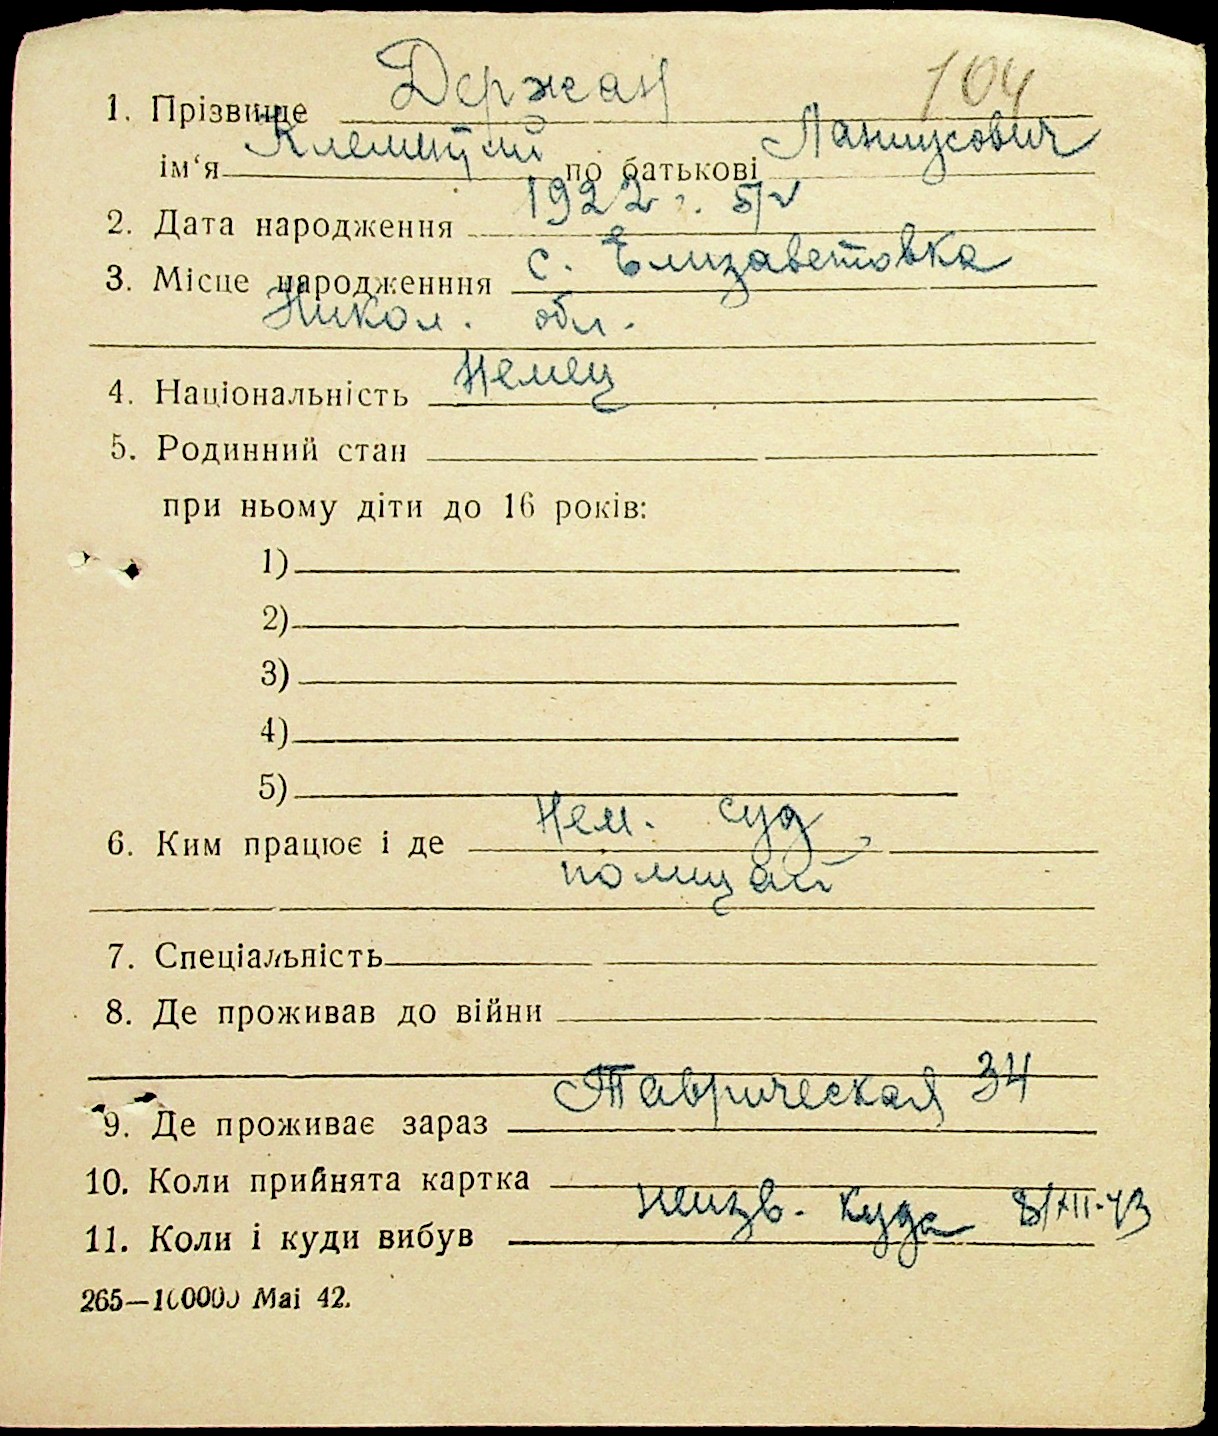 104
1. Прізвище Держан
ім'я Клементий по батькові
2. Дата народження 1922 г. 5/V
3. Місце народженння с. Елизаветовка
Никол. обл.
4. Національність Немец
5. Родинний стан
при ньому діти до 16 років:
1)
2)
3)
4)
5)
6. Ким працює і де Нем. суд,
полицай
7. Спеціальність
8. Де проживав до війни
9. Де проживає зараз Таврическая 34
10. Коли прийнята картка
11. Коли і куди вибув неизв. куда 8/XII-43
265—100000 Mai 42.